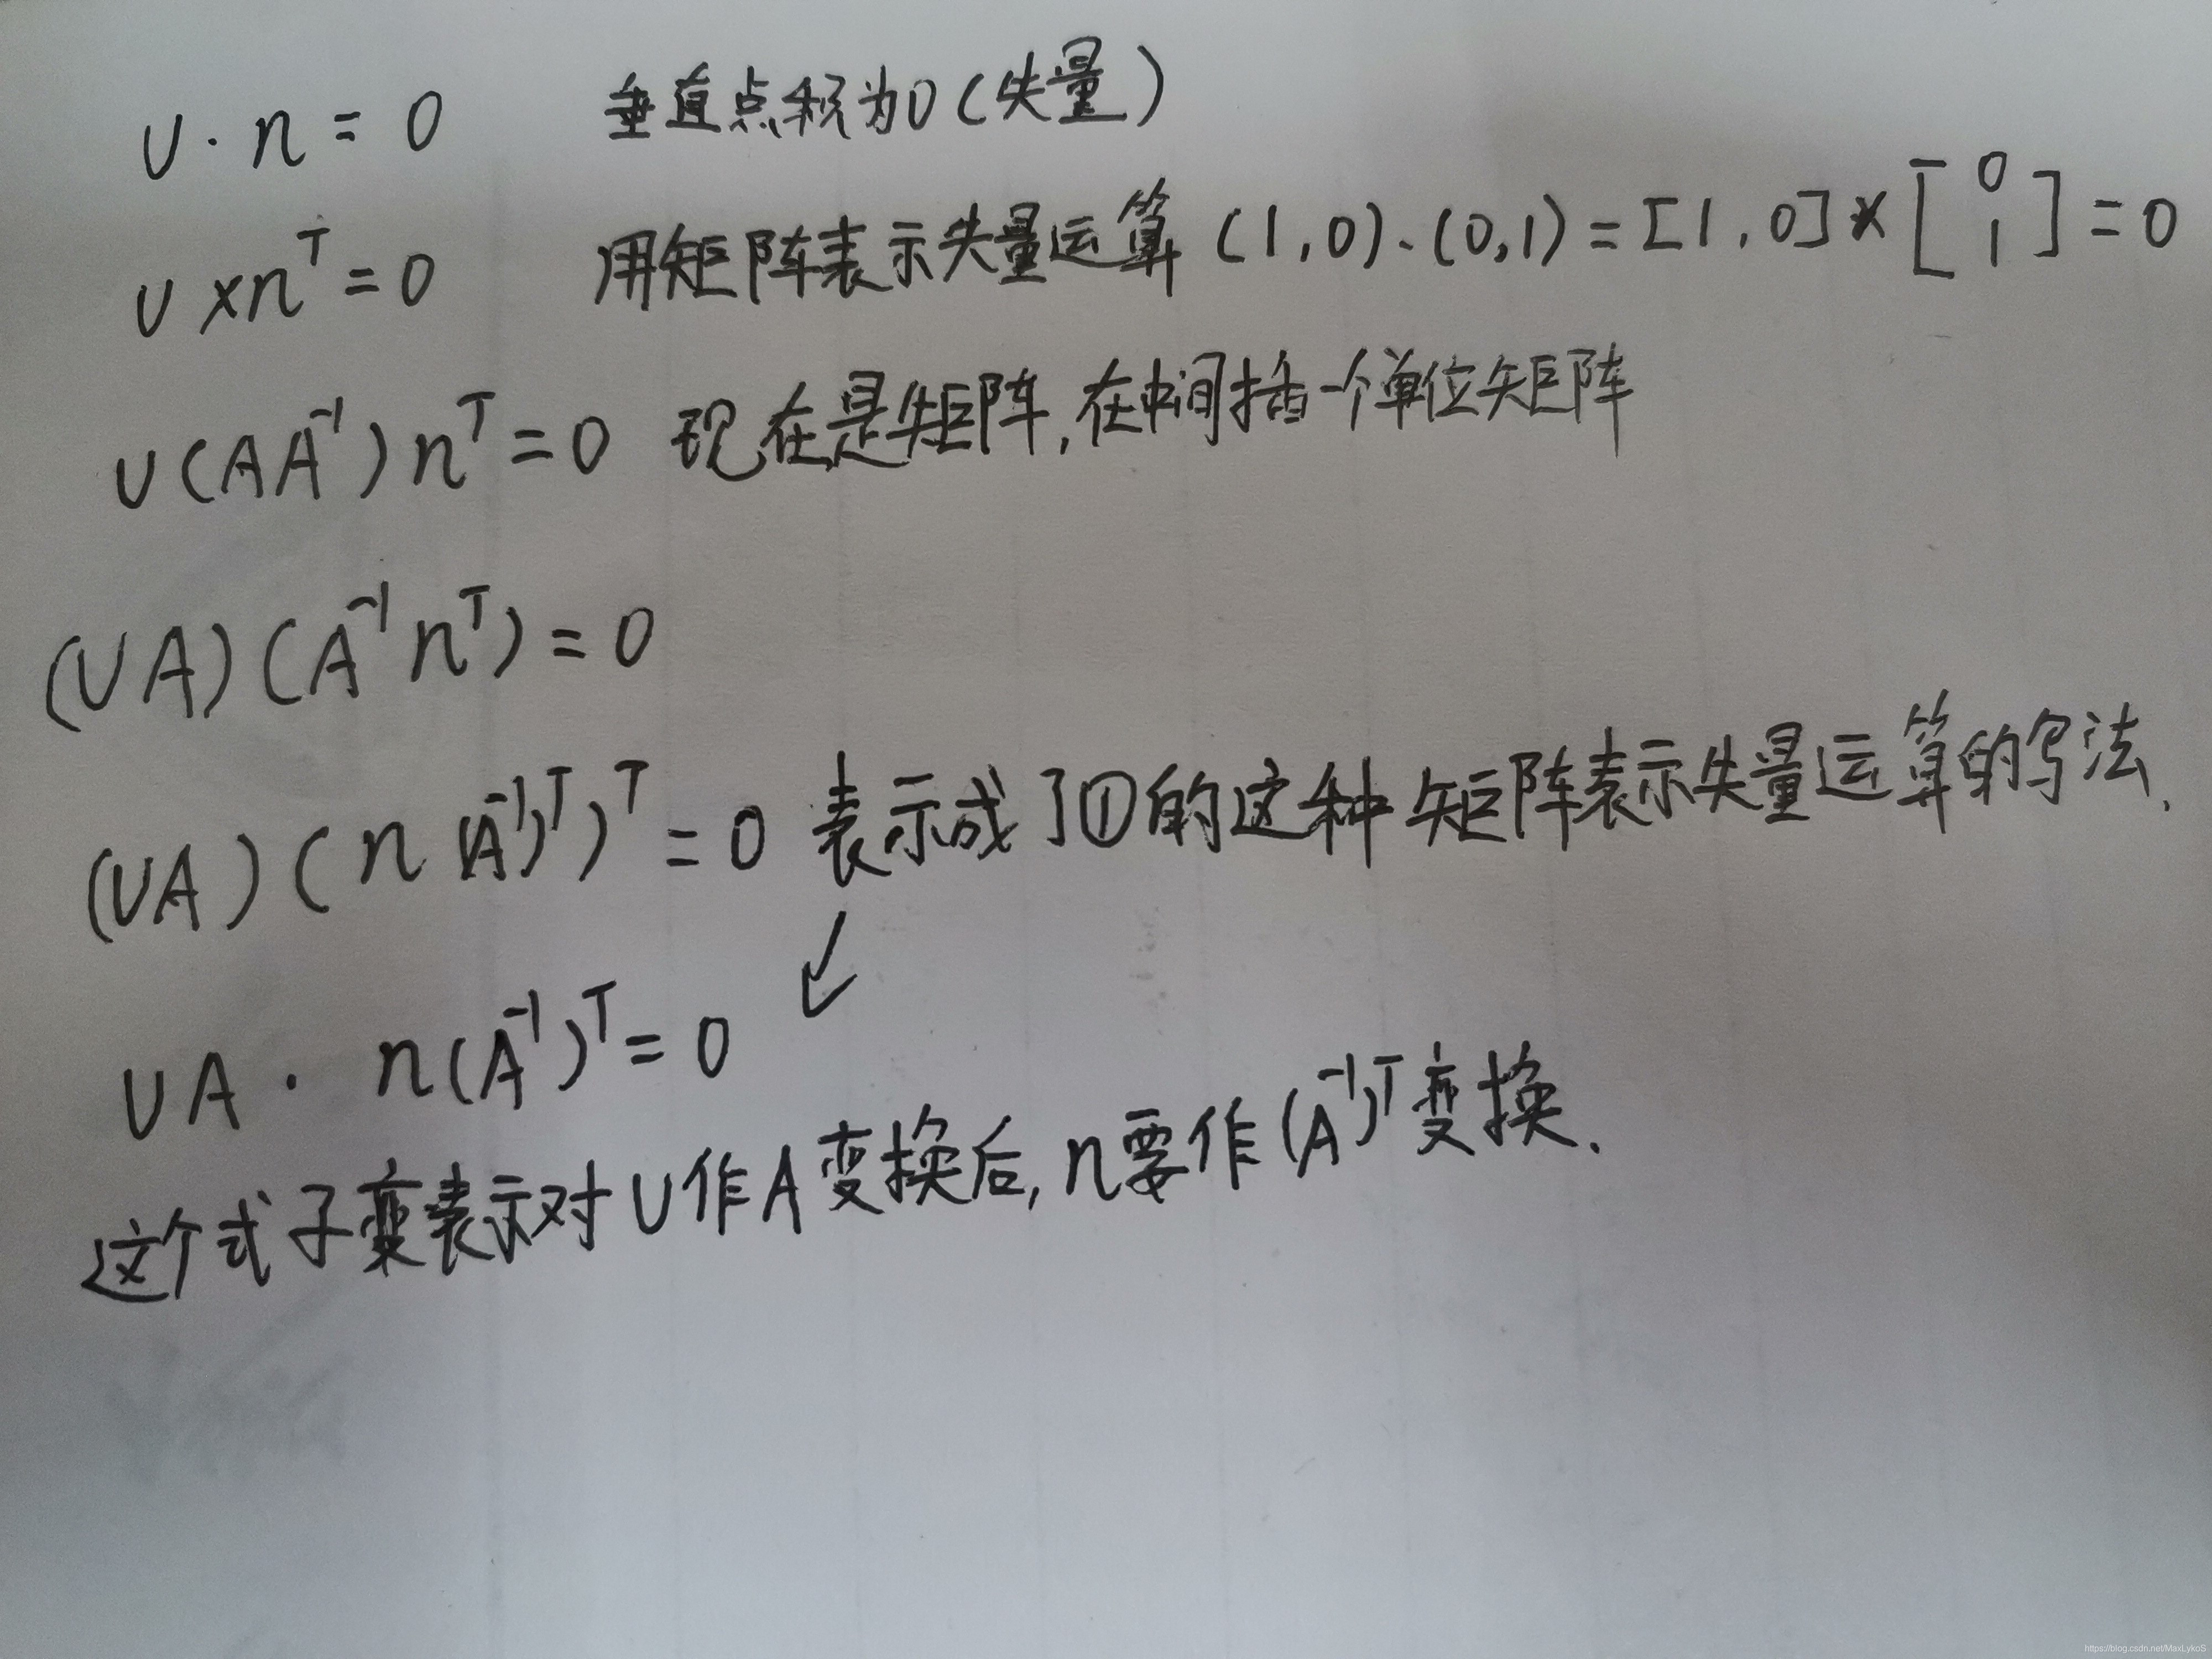 U · n = 0 垂直点积为0（失量）
U × nᵀ = 0 用矩阵表示失量运算 (1,0)·(0,1) = [1,0] × [0 1] = 0
U(AA⁻¹)nᵀ = 0 现在是矩阵,在中间插一个单位矩阵
(UA)(A⁻¹nᵀ) = 0
(UA)(n(A⁻¹)ᵀ)ᵀ = 0 表示成了①的这种矩阵表示失量运算的写法.
UA · n(A⁻¹)ᵀ = 0
这个式子变表示对U作A变换后, n要作(A⁻¹)ᵀ变换.
https://blog.csdn.net/MaxLykoS